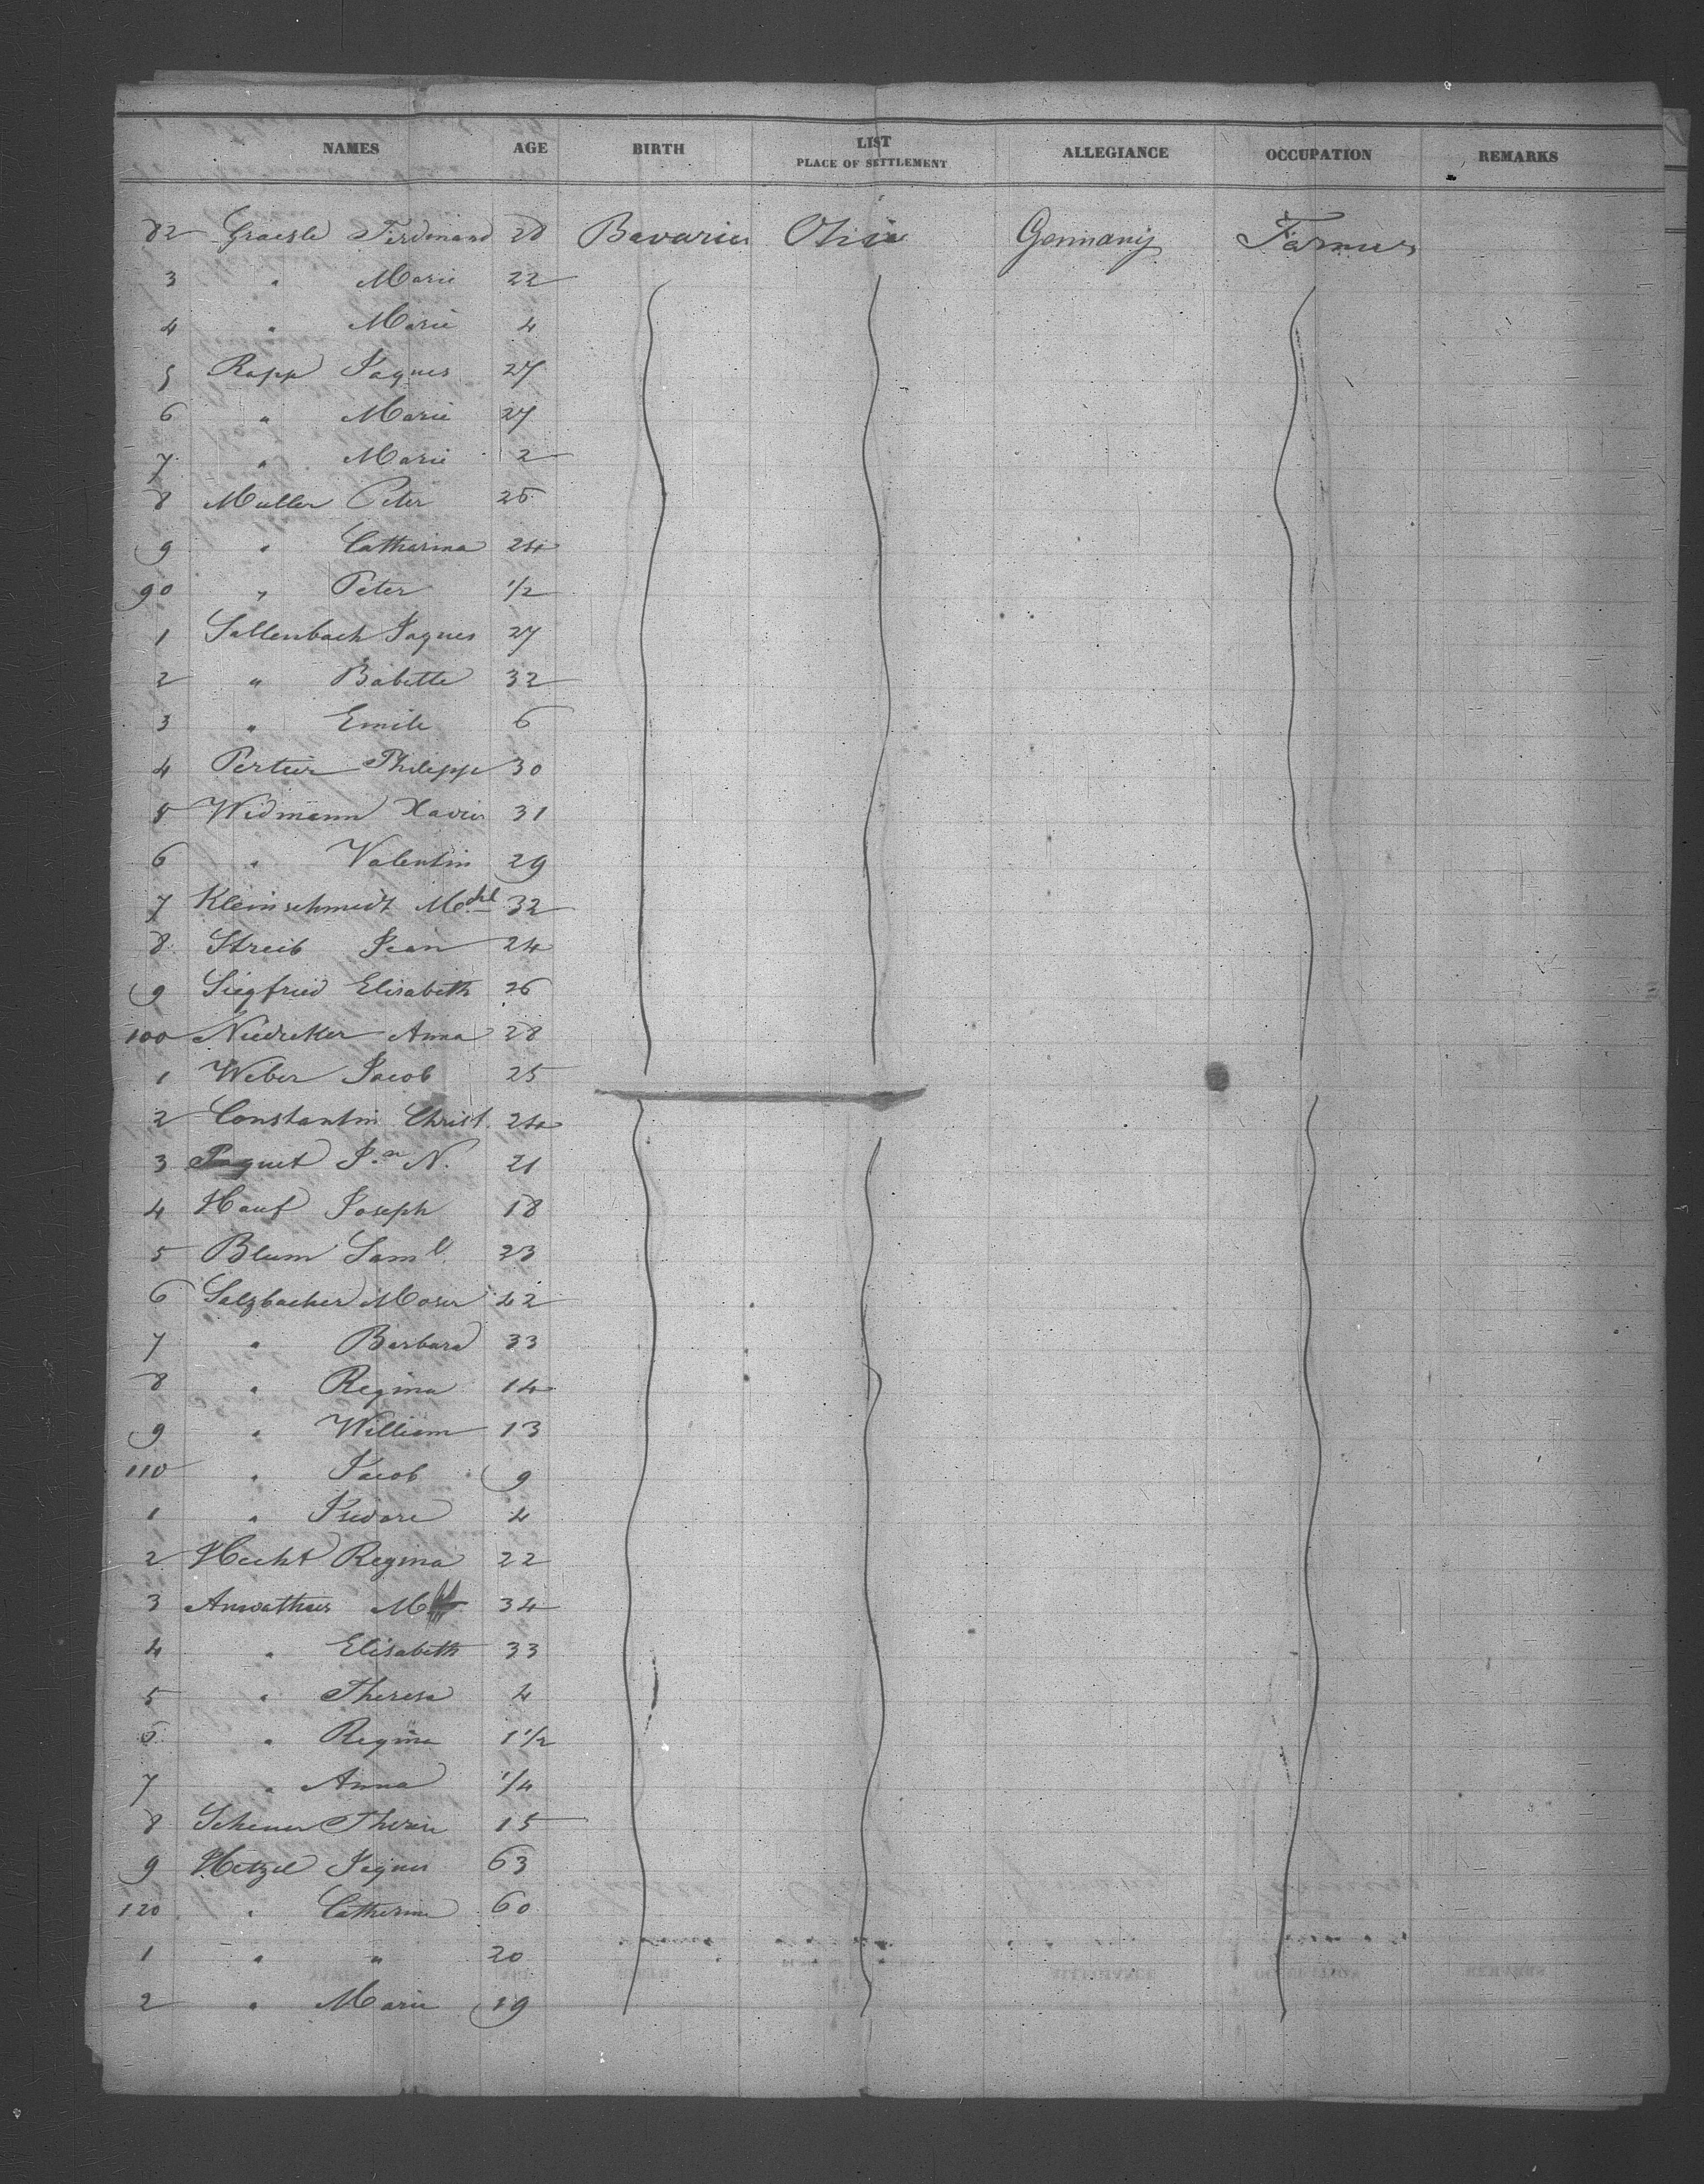 NAMES AGE BIRTH LIST PLACE OF SETTLEMENT ALLEGIANCE OCCUPATION REMARKS
82 Graesle Ferdinand 28 Bavaria Ohio Germany Farmer
3 " Marie 22
4 " Marie 4
5 Rapp Jaques 27
6 " Marie 27
7 " Marie 2
8 Muller Peter 25
9 " Catharina 24
90 " Peter 1/2
1 Sallenbach Jaques 27
2 " Babette 32
3 " Emile 6
4 Philipp 30
5 Widmann Xavier 31
6 " Valentin 29
7 Kleinschmidt Mchl 32
8 Streib Jean 24
9 Siegfried Elisabeth 26
100 Niedreker Anna 28
1 Weber Jacob 25
2 Constantin Christ. 24
3 Paquet Jn N. 21
4 Hauf Joseph 18
5 Blum Saml. 23
6 Salzbacher Moses 42
7 " Barbara 33
8 " Regina 14
9 " William 13
110 " Jacob 9
1 " Isidore 4
2 Hecht Regina 22
3 M 34
4 " Elisabeth 33
5 " Theresa 4
6 " Regina 1 1/2
7 " Anna 1/4
8 Scheuer Therese 15
9 Hetzel Jaques 63
120 " Catherine 60
1 " " 20
2 " Marie 19